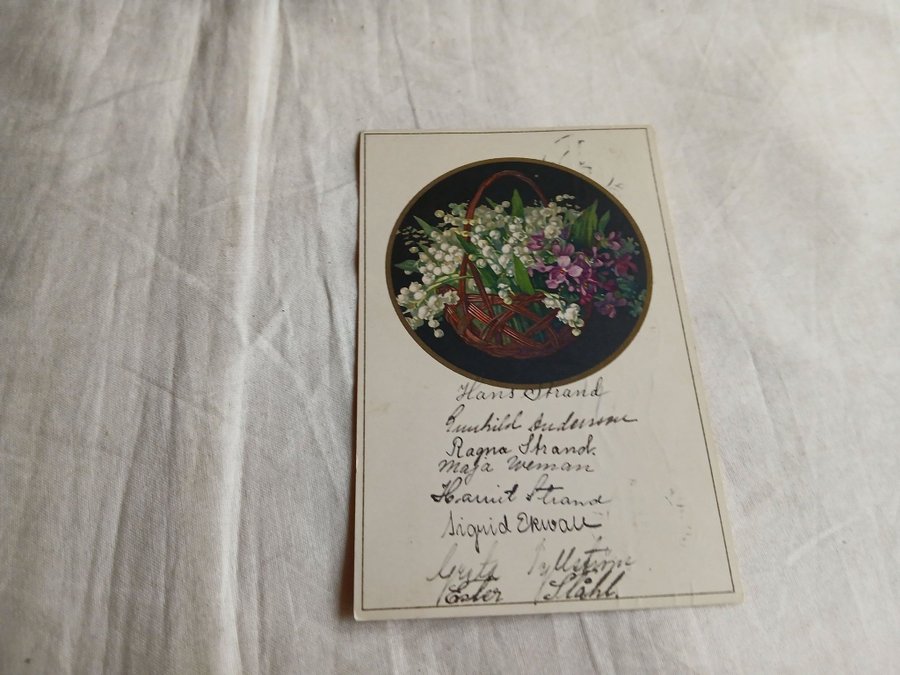 Hans Strand
Gunhild Andersson
Ragna Strand.
Maja Weman
Harriet Strand
Sigrid Ekwall
Greta
Ester Ståhl.